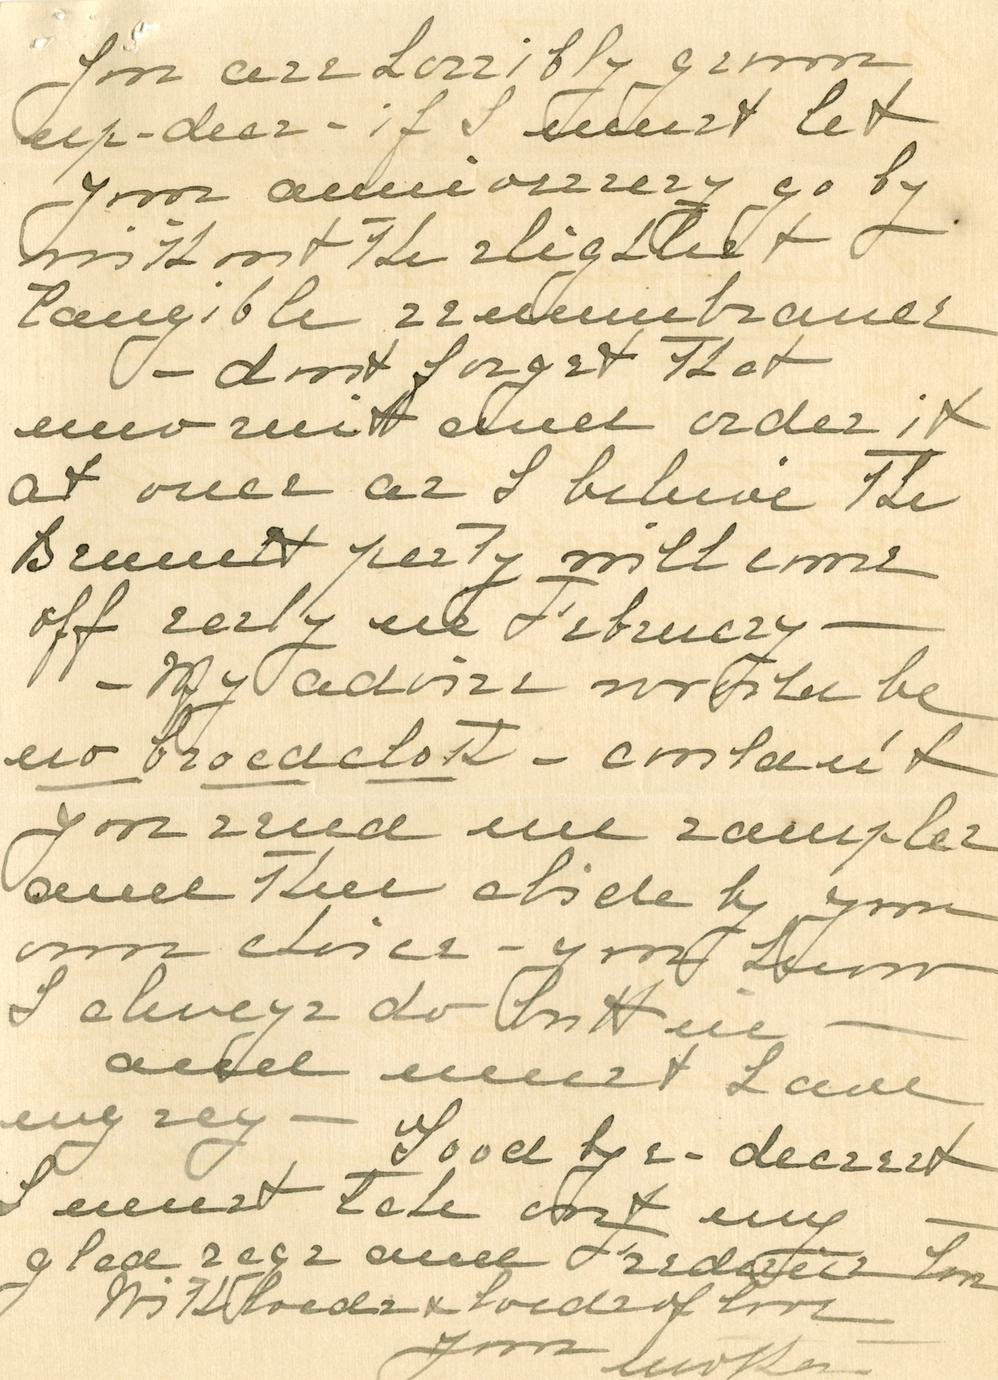 You are horribly grown
up-dear- if I must let
your anniversary go by
without the slightest
tangible remembrance
- don't forget that
new suit and order it
at once as I believe the
Bennett party will come
off early in February —
- My advise would be
no broadcloth - couldn't
you send me samples
and then abide by your
own choice - you know
I always do butt in —
and must have
my say —
Good bye- dearest
I must take out my
glad rags and Frederic
With loads & loads of love
your mother